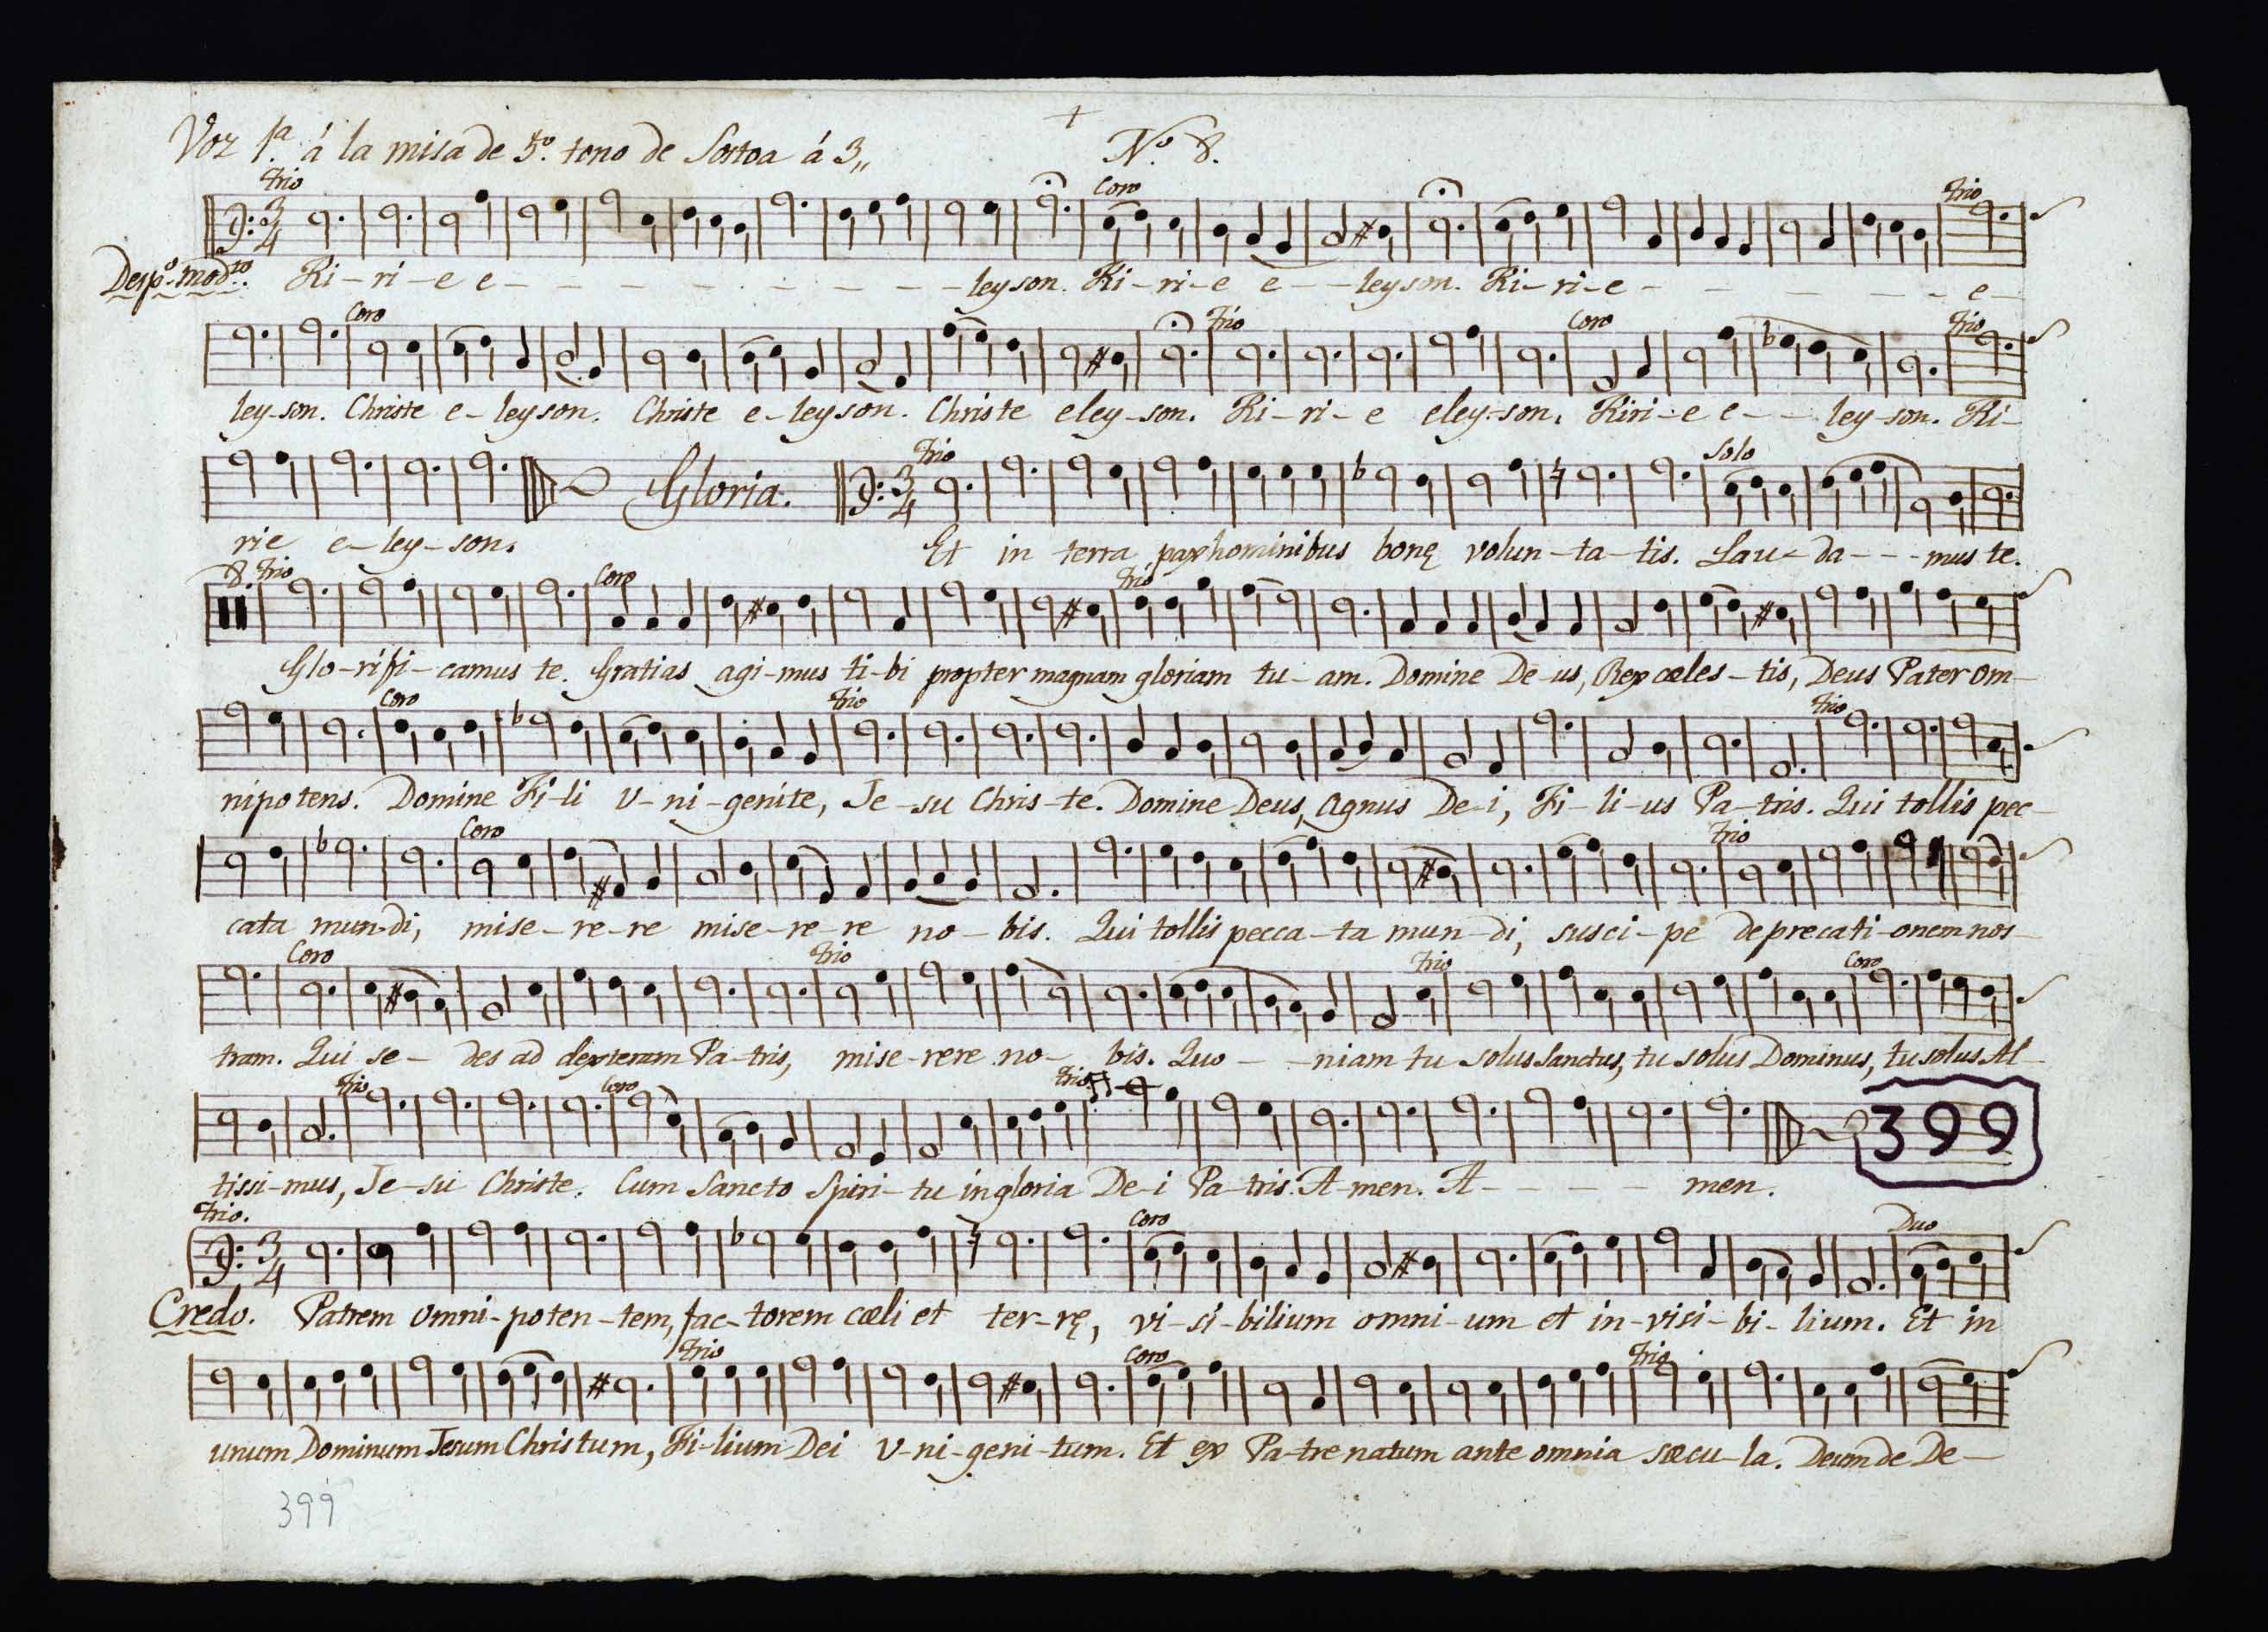 +
Voz 1.ª á la misa de 5.º tono de Sostoa á 3,, N.º 8.
Trio Coro Trio
3/4
Desp.º mod.to Ki-ri-e e- - - - - - - - leyson. Ki-ri-e e- -leyson. Ki-ri-e - - - - - e-
Coro Trio Coro Trio
ley-son. Christe e-leyson. Christe e-leyson. Christe eley-son. Ki-ri-e eley-son. Kiri-e e- - ley-son. Ki-
Trio Solo
Gloria. 3/4
rie e-ley-son. Et in terra pax hominibus bonę volun-ta-tis. Lau-da- - -mus te.
8. Trio Coro Trio
Glo-rifi-camus te. Gratias agi-mus ti-bi propter magnam gloriam tu-am. Domine De-us, Rex cœles-tis, Deus Pater om-
Coro Trio Trio
nipotens. Domine Fi-li U-ni-genite, Je-su Chris-te. Domine Deus, Agnus De-i, Fi-li-us Pa-tris. Qui tollis pec-
Coro Trio
cata mun-di, mise-re-re mise-re-re no-bis. Qui tollis pecca-ta mun-di, susci-pe deprecati-onem nos-
Coro Trio Trio Coro
tram. Qui se- des ad dexteram Pa-tris, mise-rere no- bis. Quo- -niam tu solus Sanctus, tu solus Dominus, tu solus Al-
Trio Coro Trio
399
tissi-mus, Je-su Christe. Cum Sancto Spiri-tu in gloria De-i Pa-tris. A-men. A- - - - men.
Trio. Coro Duo
3/4
Credo. Patrem omni-poten-tem, fac-torem cœli et ter-rę, vi-si-bilium omni-um et in-visi-bi-lium. Et in
Trio Coro Trio
unum Dominum Jesum Christum, Fi-lium Dei U-ni-geni-tum. Et ex Pa-tre natum ante omnia sœcu-la. Deum de De-
399